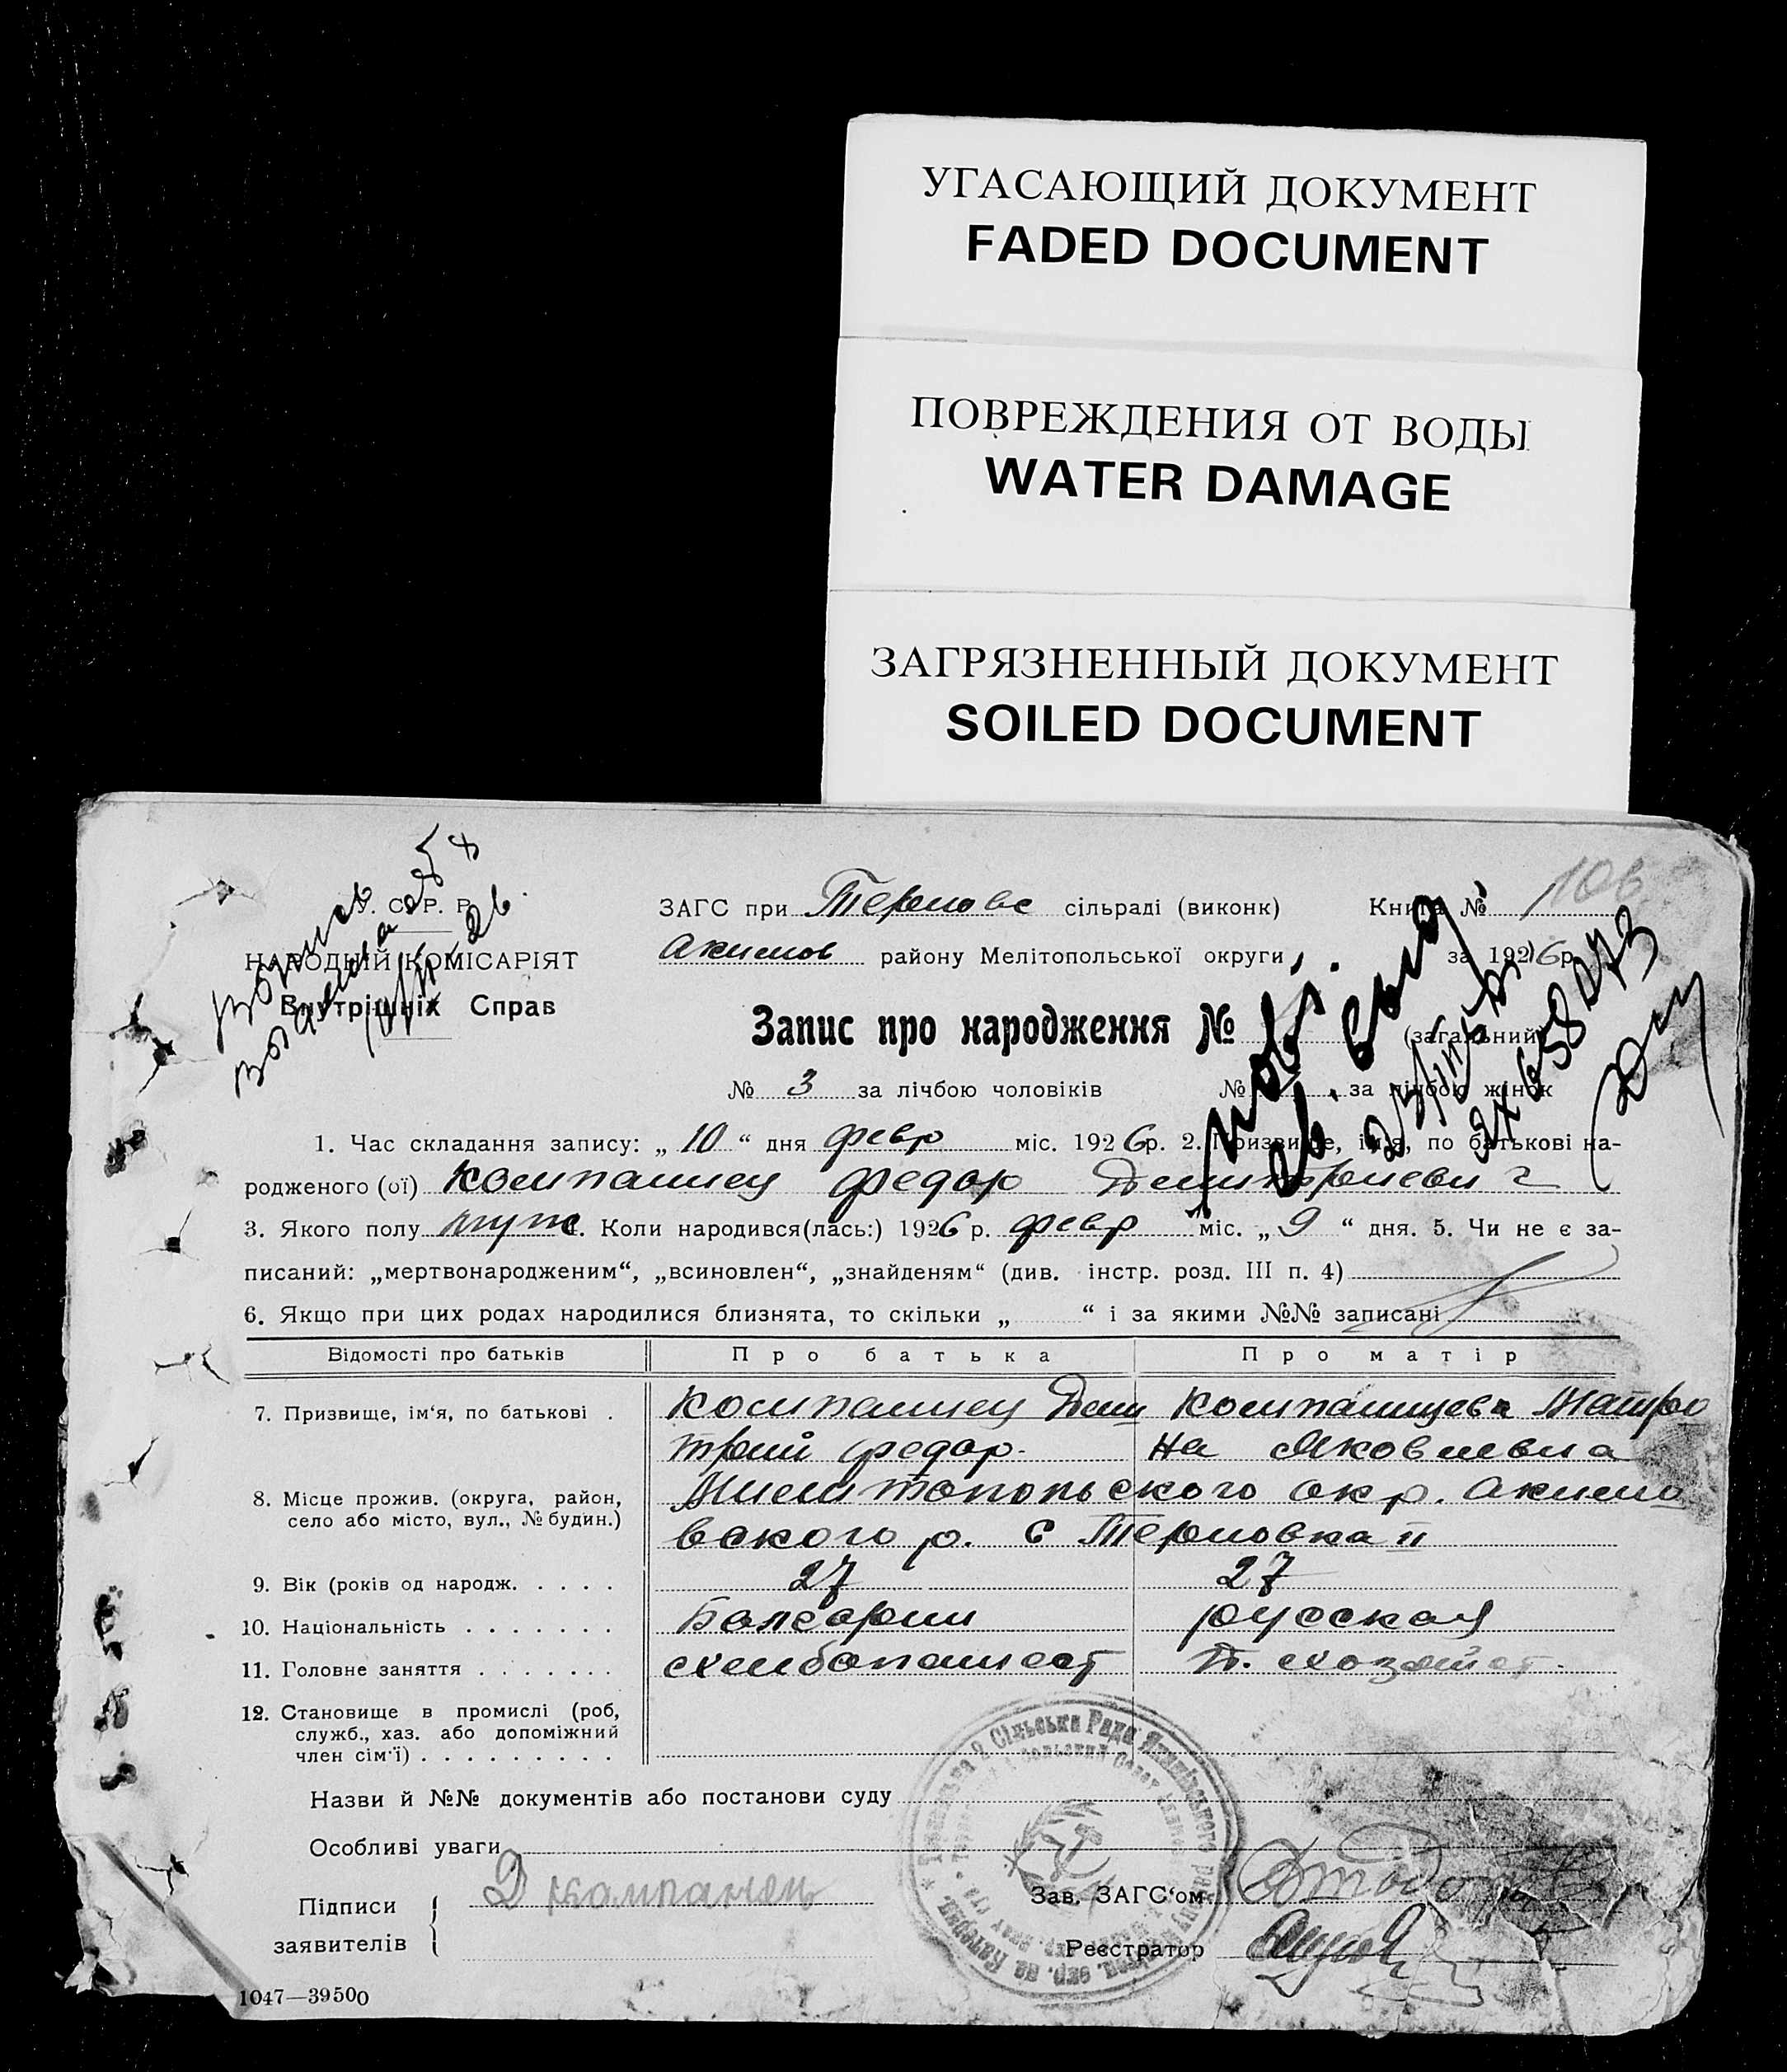 УГАСАЮЩИЙ ДОКУМЕНТ
FADED DOCUMENT
ПОВРЕЖДЕНИЯ ОТ ВОДЫ
WATER DAMAGE
ЗАГРЯЗНЕННЫЙ ДОКУМЕНТ
SOILED DOCUMENT
У. С. Р. Р.
НАРОДНИЙ КОМІСАРІЯТ
Внутрішніх Справ
ЗАГС при Терновс сільраді (виконк) Книга № 106
Акимов району Мелітопольської округи за 1926р.
Запис про народження № (загальний)
№ 3 за лічбою чоловіків № за лічбою жінок
1. Час складання запису: „ 10 “ дня февр міс. 1926р. 2. Призвище, ім'я, по батькові на-
родженого (ої) Компаниец Федор Дмитриевич
3. Якого полу муж 4. Коли народився(лась:) 1926 р. февр міс. „ 9 “ дня. 5. Чи не є за-
писаний: „мертвонародженим“, „всиновлен“, „знайденям“ (див. інстр. розд. III п. 4)
6. Якщо при цих родах народилися близнята, то скільки „ “ і за якими №№ записані
Відомості про батьків Про батька Про матір
7. Призвище, ім‘я, по батькові . Компаниец Дми Компанищева Матро
трий Федор. на Яковлевна
8. Місце прожив. (округа, район,
село або місто, вул., № будин.)
Милитопольского окр. Акимо
вского р. С Терновка II
9. Вік (років од народж. . . . . 27 27
10. Національність . . . . . . . Болгарин русская
11. Головне заняття . . . . . . . схлибопашест д. схозяйст.
12. Становище в промислі (роб,
служб., хаз. або допоміжний
член сім'ї) . . . . . . . . .
Назви й №№ документів або постанови суду
Особливі уваги
Підписи
заявителів
Д компанец
Зав. ЗАГС‘ом
Реєстратор
1047—39500